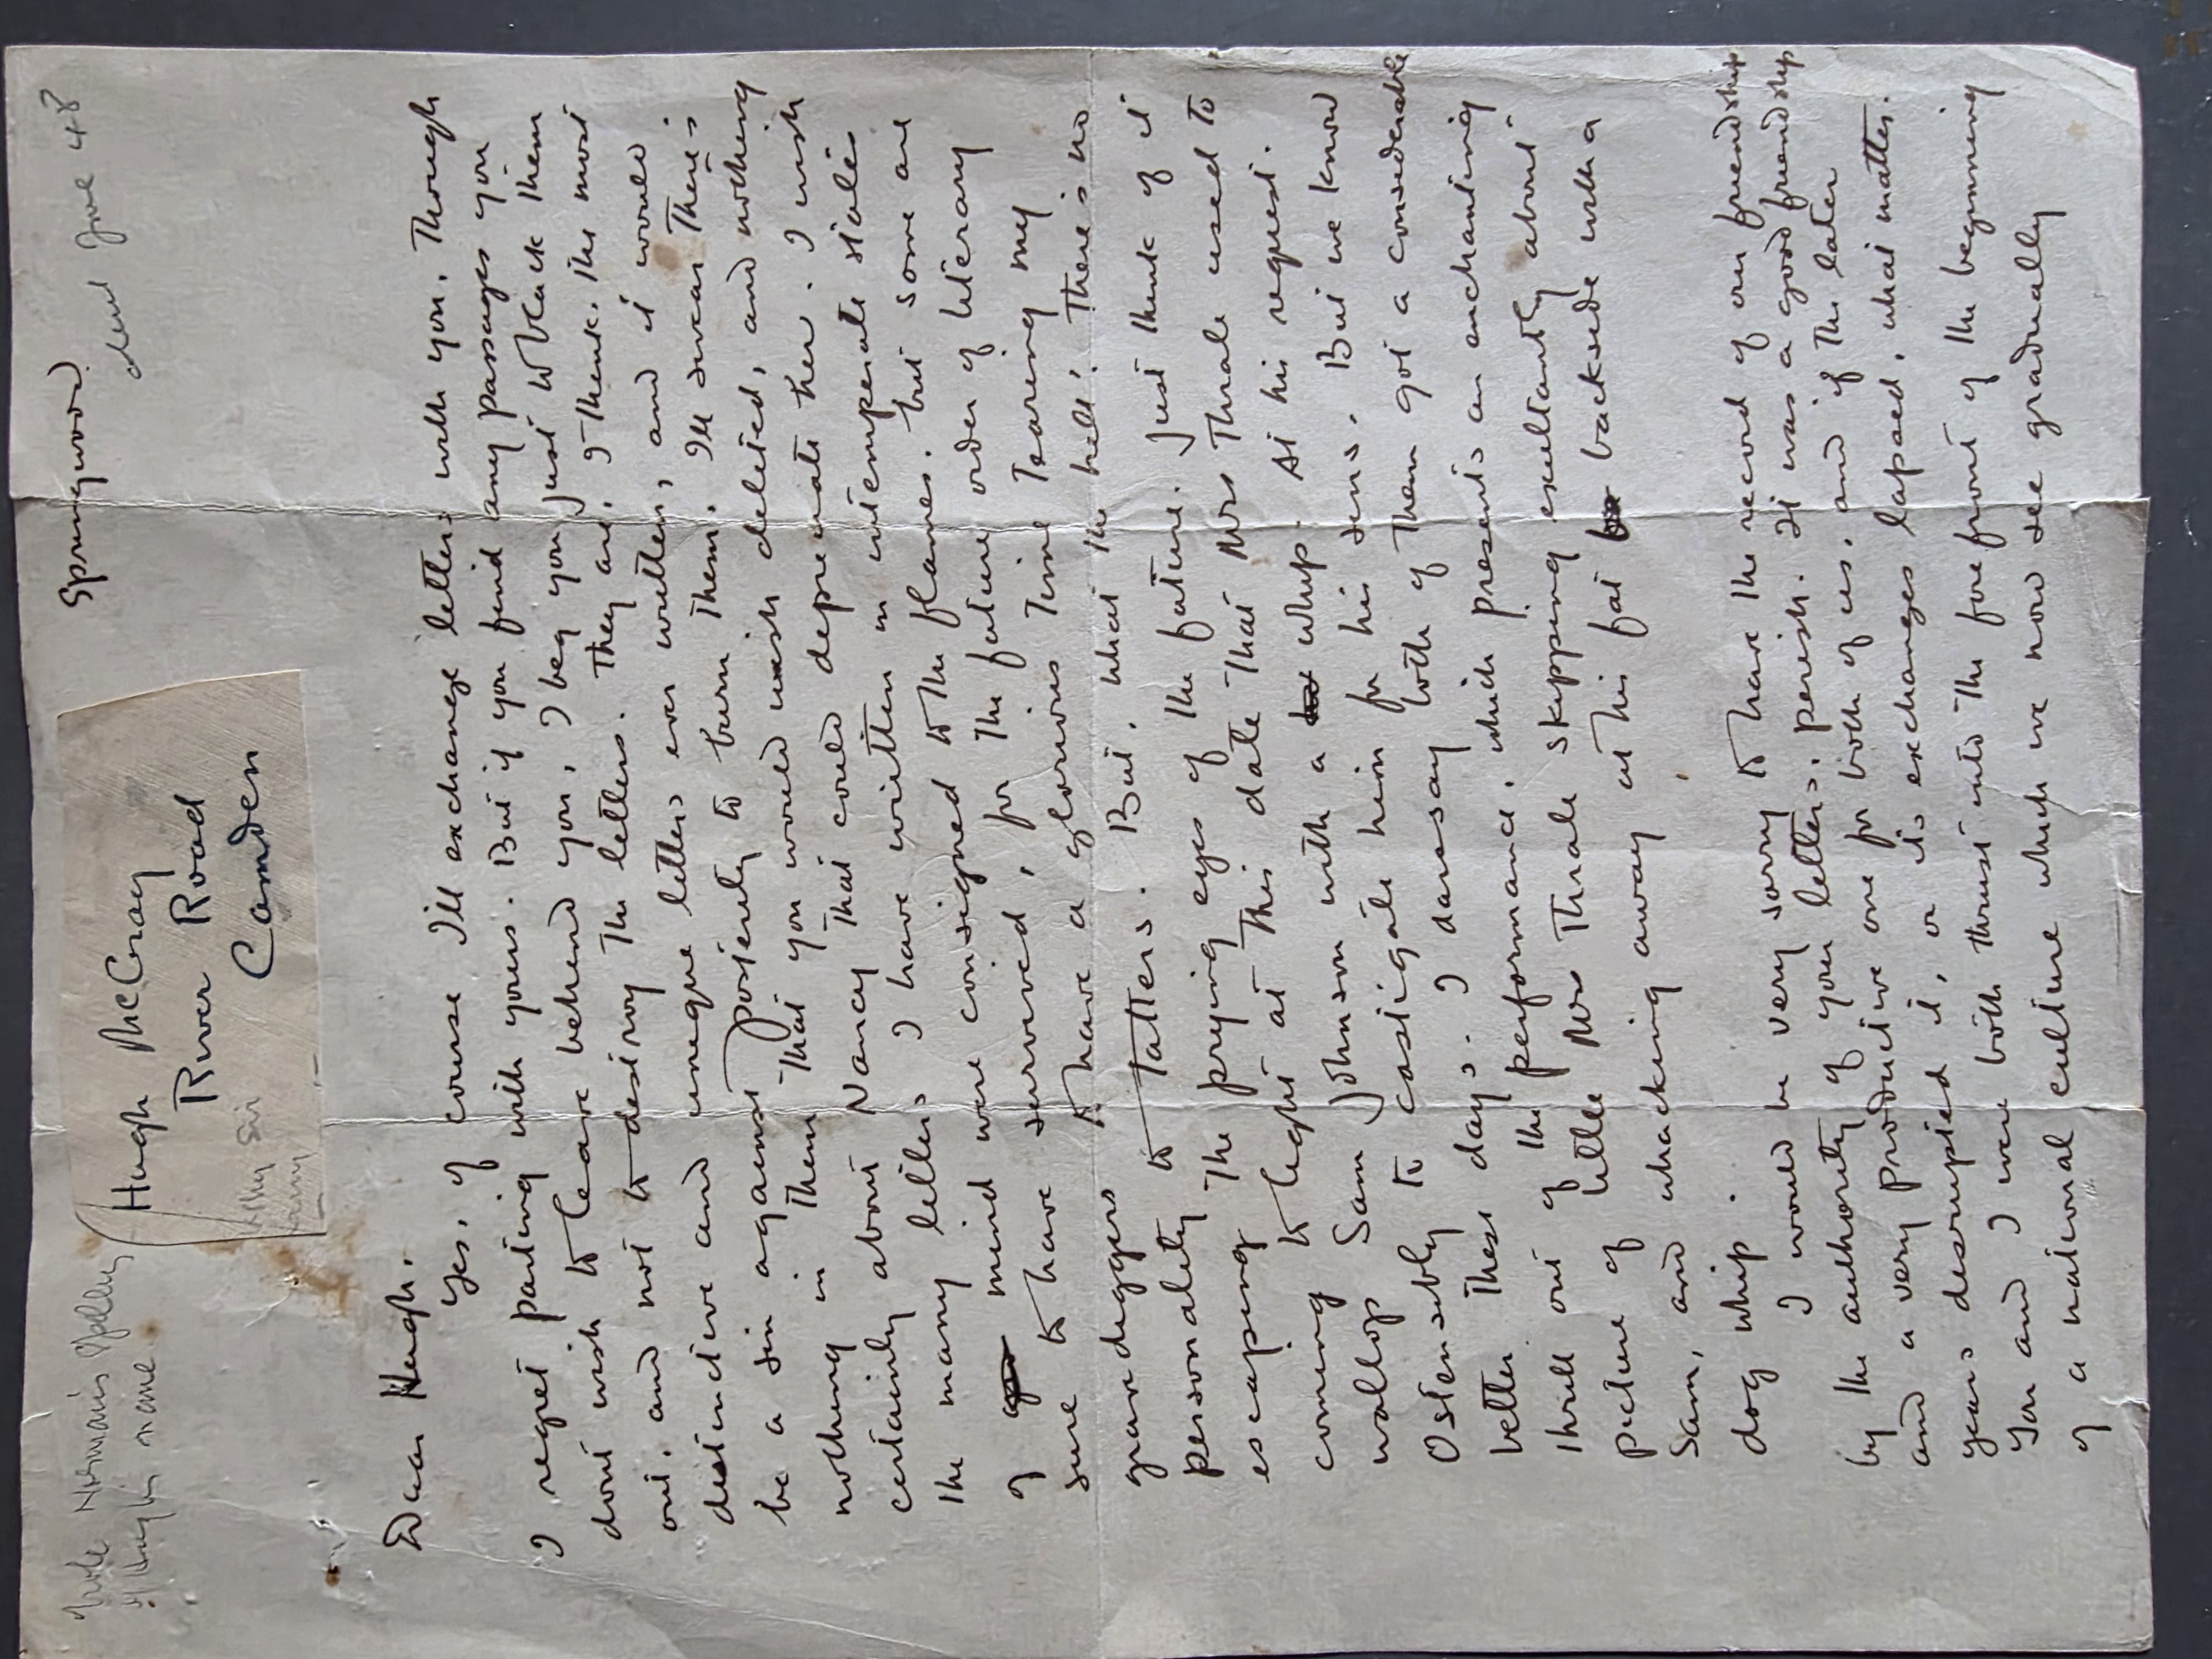 Note Norman's spelling
of Hugh's name.
Hugh McCray
River Road
Camden
Springwood
June 48
Dear Hugh.
Yes, of course I'll exchange letters with you. Though
I regret parting with yours. But if you find any passages you
dont wish to leave behind you, I beg you just to black them
out, and not to destroy the letters. They are, I think, the most
distinctive and unique letters ever written, and it would
be a sin against posterity to burn them. I'll swear there is
nothing in them that you would wish deleted, and nothing
certainly about Nancy that could depreciate her. I wish
the many letters I have written in intemperate states
of mind were consigned to the flames. but some are
sure to have survived, for the future order of literary
gravediggers to have a glorious time tearing my
personality to tatters. But, what the hell! There is no
escaping the prying eyes of the future. Just think of it
coming to light at this date that Mrs Thrale used to
wallop Sam Johnson with a whip. At his request.
Ostensibly to castigate him for his sins. But we know
better these days. I daresay both of them got a considerable
thrill out of the performance, which presents an enchanting
picture of little Mrs Thrale skipping exultantly about
Sam, and whacking away at his fat backside with a
dog whip.
I would be very sorry to have the record of our friendship
by the authority of your letters, perish. It was a good friendship
and a very productive one for both of us, and if the later
years desrupted it, or its exchanges lapsed, what matter.
You and I were both thrust into the forefront of the beginning
of a national culture which we now see gradually